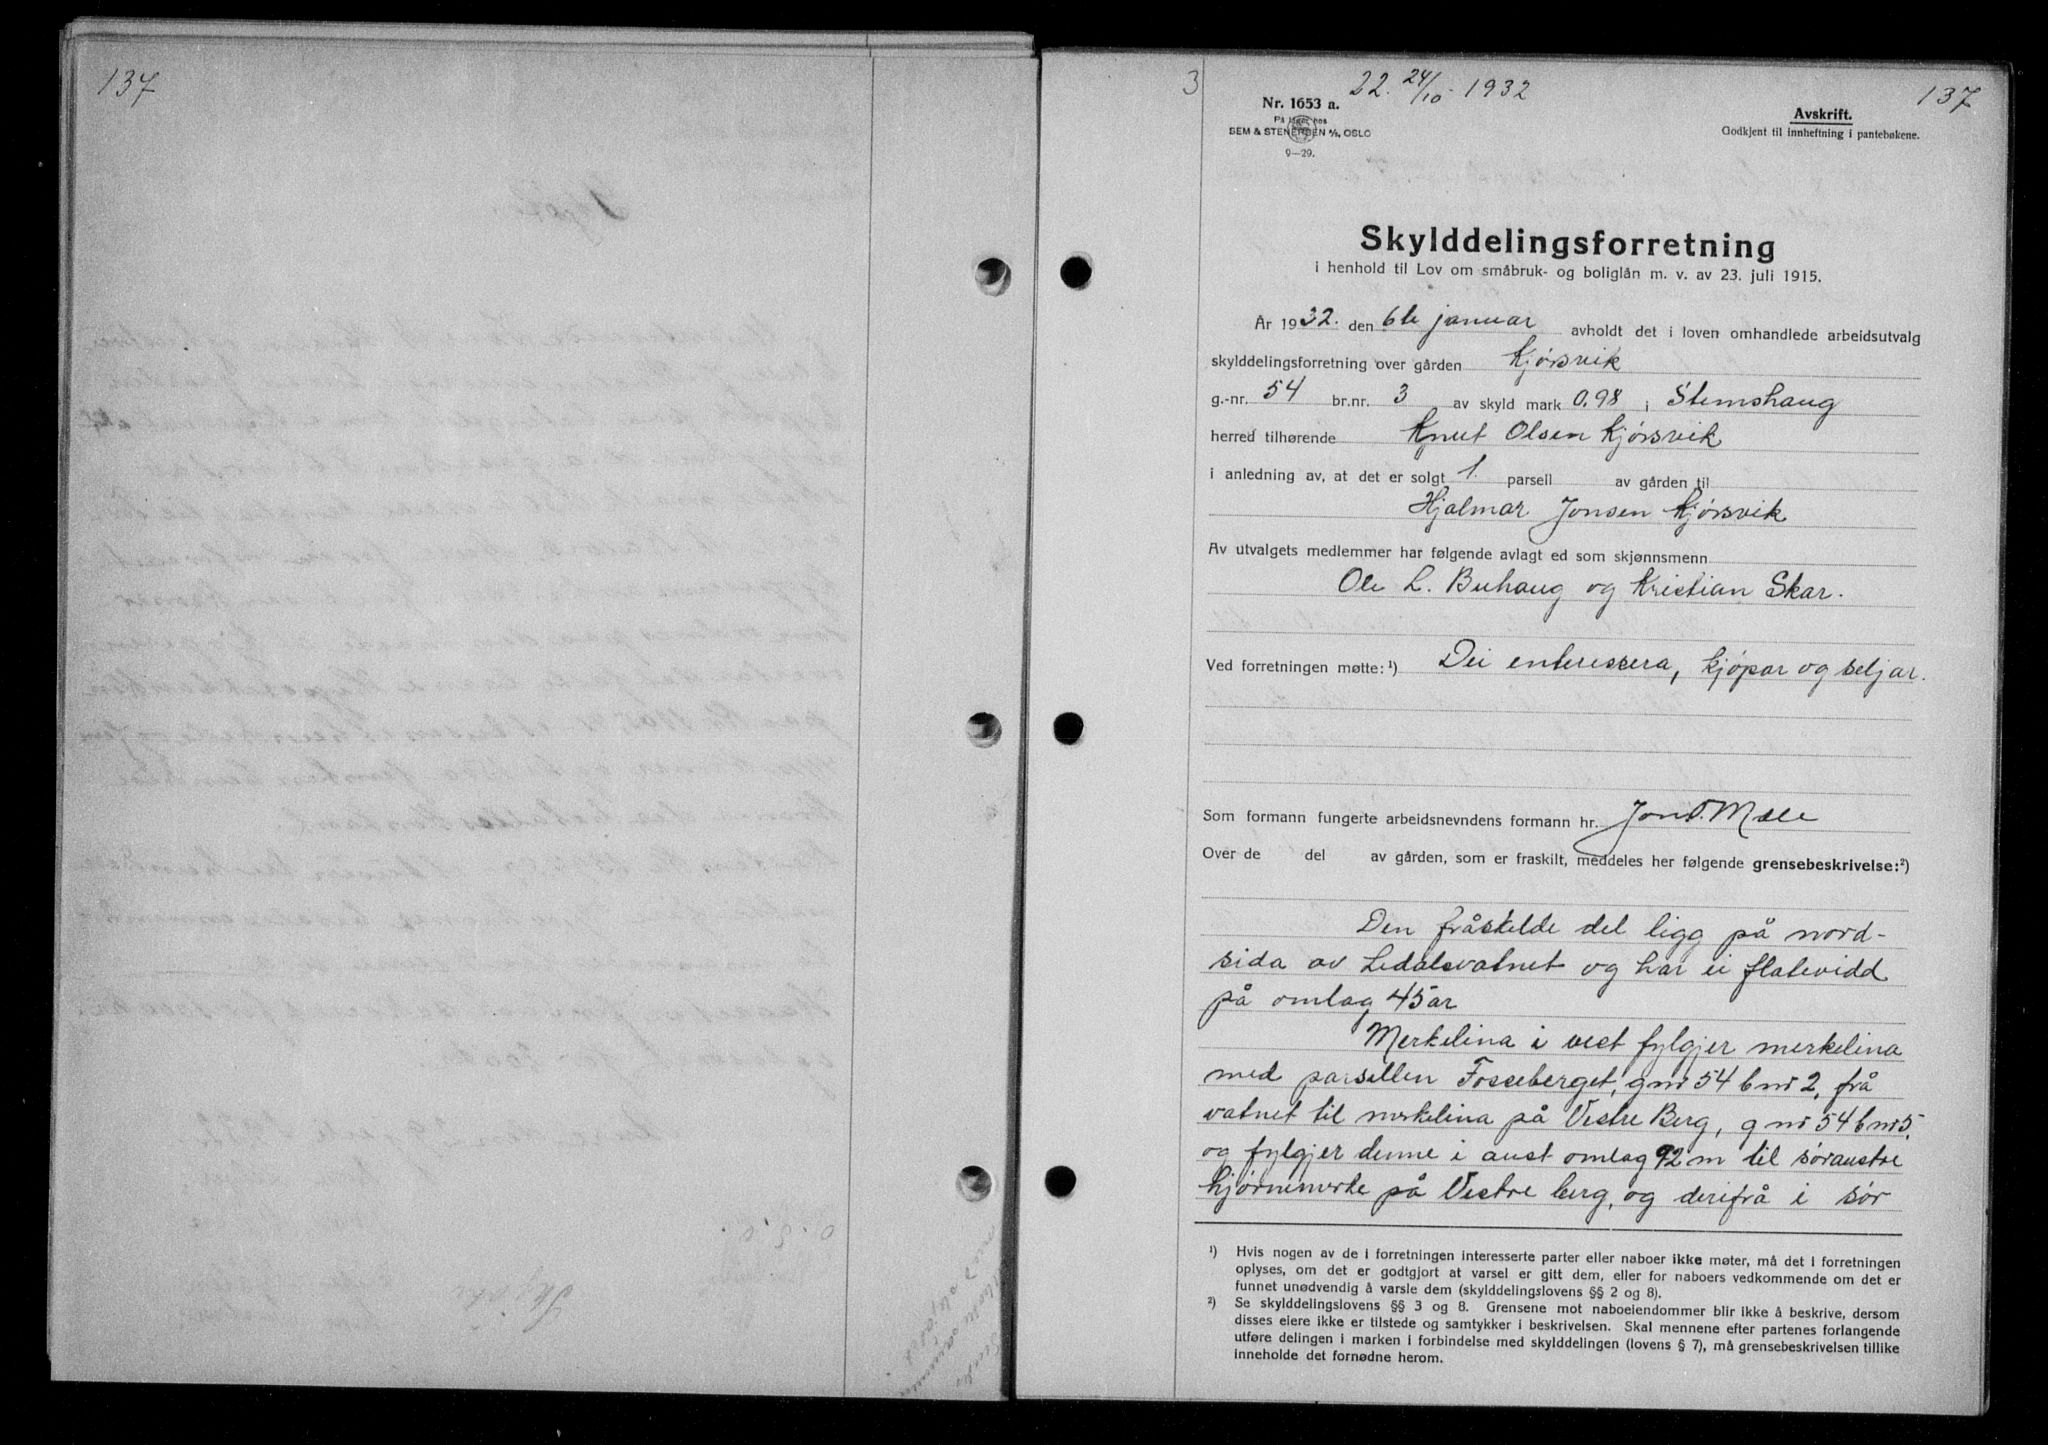 137
3
22. 24/10 1932
137
Nr. 1653 a.
På lager hos
SEM & STENERSEN A/S, OSLO
9—29.
Avskrift.
Godkjent til innheftning i pantebøkene.
Skylddelingsforretning
i henhold til Lov om småbruk- og boliglån m. v. av 23. juli 1915.
År 1932. den 6te januar avholdt det i loven omhandlede arbeidsutvalg
skylddelingsforretning over gården Kjørsvik
g.-nr. 54 br.nr. 3 av skyld mark 0.98 i Stemshaug
herred tilhørende Knut Olsen Kjørsvik
i anledning av, at det er solgt 1. parsell av gården til
Hjalmar Jonsen Kjørsvik
Av utvalgets medlemmer har følgende avlagt ed som skjønnsmenn
Ole L. Buhaug og Kristian Skar.
Ved forretningen møtte:¹) Dei enteressera, kjøpar og seljar.
Som formann fungerte arbeidsnevndens formann hr. Jon O. Mæle
Over de del av gården, som er fraskilt, meddeles her følgende grensebeskrivelse:²)
Den fråskelde del ligg på nord-
sida av Ledalsvatnet og har ei flatevidd
på omlag 45 ar
Merkelina i vest fylgjer merkelina
med parsellen Fosseberget, gnr 54 bnr 2, frå
vatnet til merkelina på Vestre Berg, gnr 54 bnr 5,
og fylgjer denne i aust omlag 92 m til søraustre
hjørnemerke på Vestre berg, og derifrå i sør
¹) Hvis nogen av de i forretningen interesserte parter eller naboer ikke møter, må det i forretningen
oplyses, om det er godtgjort at varsel er gitt dem, eller for naboers vedkommende om det er
funnet unødvendig å varsle dem (skylddelingslovens §§ 2 og 8).
²) Se skylddelingslovens §§ 3 og 8. Grensene mot naboeiendommer blir ikke å beskrive, dersom
disses eiere ikke er tilstede og samtykker i beskrivelsen. Skal mennene efter partenes forlangende
utføre delingen i marken i forbindelse med skylddelingen (lovens § 7), må grensebeskrivelsen tillike
inneholde det fornødne herom.